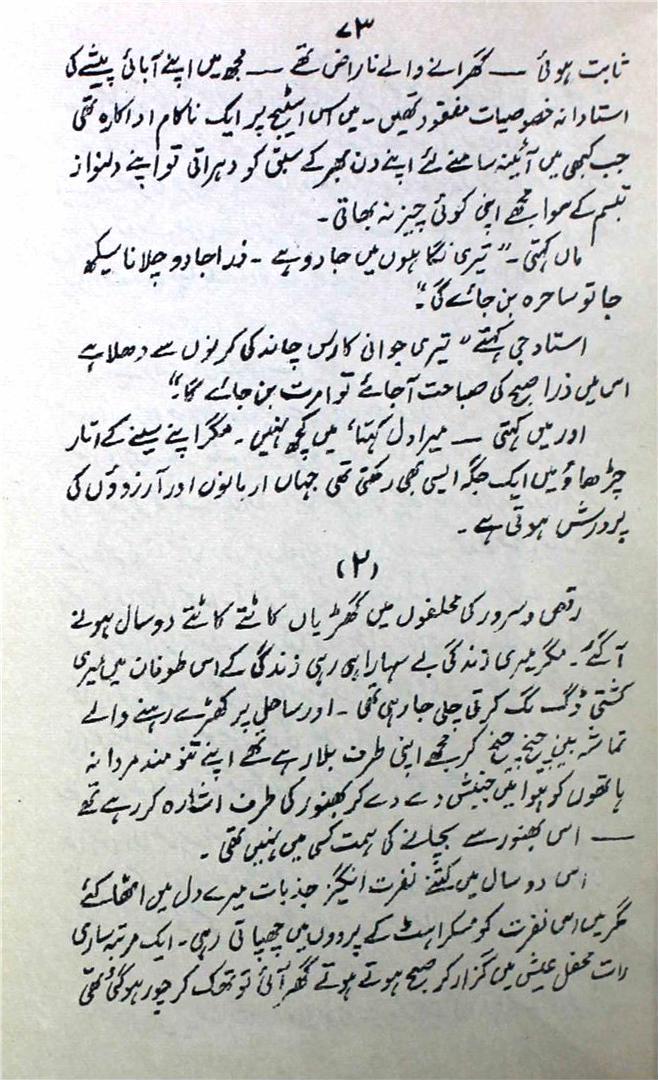 ۷۳
ثابت ہوئی — گھرانے والے ناراض تھے — مجھ میں اپنے آبائی پیشے کی
استادانہ خصوصیات مفقود تھیں۔ میں اس اسٹیج پر ایک ناکام اداکارہ تھی
جب کبھی میں آئینہ سامنے لئے اپنے دن بھر کے سبق کو دہراتی تو اپنے دلنواز
تبسم کے سوا مجھے اپنی کوئی چیز نہ بھاتی۔
ماں کہتی۔ ”تیری نگاہوں میں جادو ہے۔ ذرا جادو چلانا سیکھ
جا تو ساحرہ بن جائے گی“۔
استاد جی کہتے ”تیری جوانی کا رس چاند کی کرنوں سے دھلا ہے
اس میں ذرا صبح کی صباحت آجائے تو امرت بن جائے گا۔“
اور میں کہتی — میرا دل کہتا، میں کچھ نہیں۔ مگر اپنے سینے کے اتار
چڑھاؤ میں ایک جگہ ایسی بھی رکھتی تھی جہاں ارمانوں اور آرزوؤں کی
پرورش ہوتی ہے۔
(۲)
رقص و سرور کی محفلوں میں گھڑیاں کاٹتے کاٹتے دو سال ہونے
آگئے۔ مگر میری زندگی بے سہارا ہی رہی زندگی کے اس طوفان میں میری
کشتی ڈگ مگ کرتی چلی جا رہی تھی۔ اور ساحل پر کھڑے رہنے والے
تماشہ بین چیخ چیخ کر مجھے اپنی طرف بلا رہے تھے اپنے تنومند مردانہ
ہاتھوں کو ہوا میں جنبش دے دے کر بھنور کی طرف اشارہ کر رہے تھے
— اس بھنور سے بچانے کی ہمت کسی میں نہیں تھی۔
اس دو سال میں کتنے نفرت انگیز جذبات میرے دل میں اٹھا کئے
مگر میں اس نفرت کو مسکراہٹ کے پردوں میں چھپاتی رہی۔ ایک مرتبہ ساری
رات محفل عیش میں گزار کر صبح ہوتے ہوتے گھر آئی تو تھک کر چور ہوگئی تھی